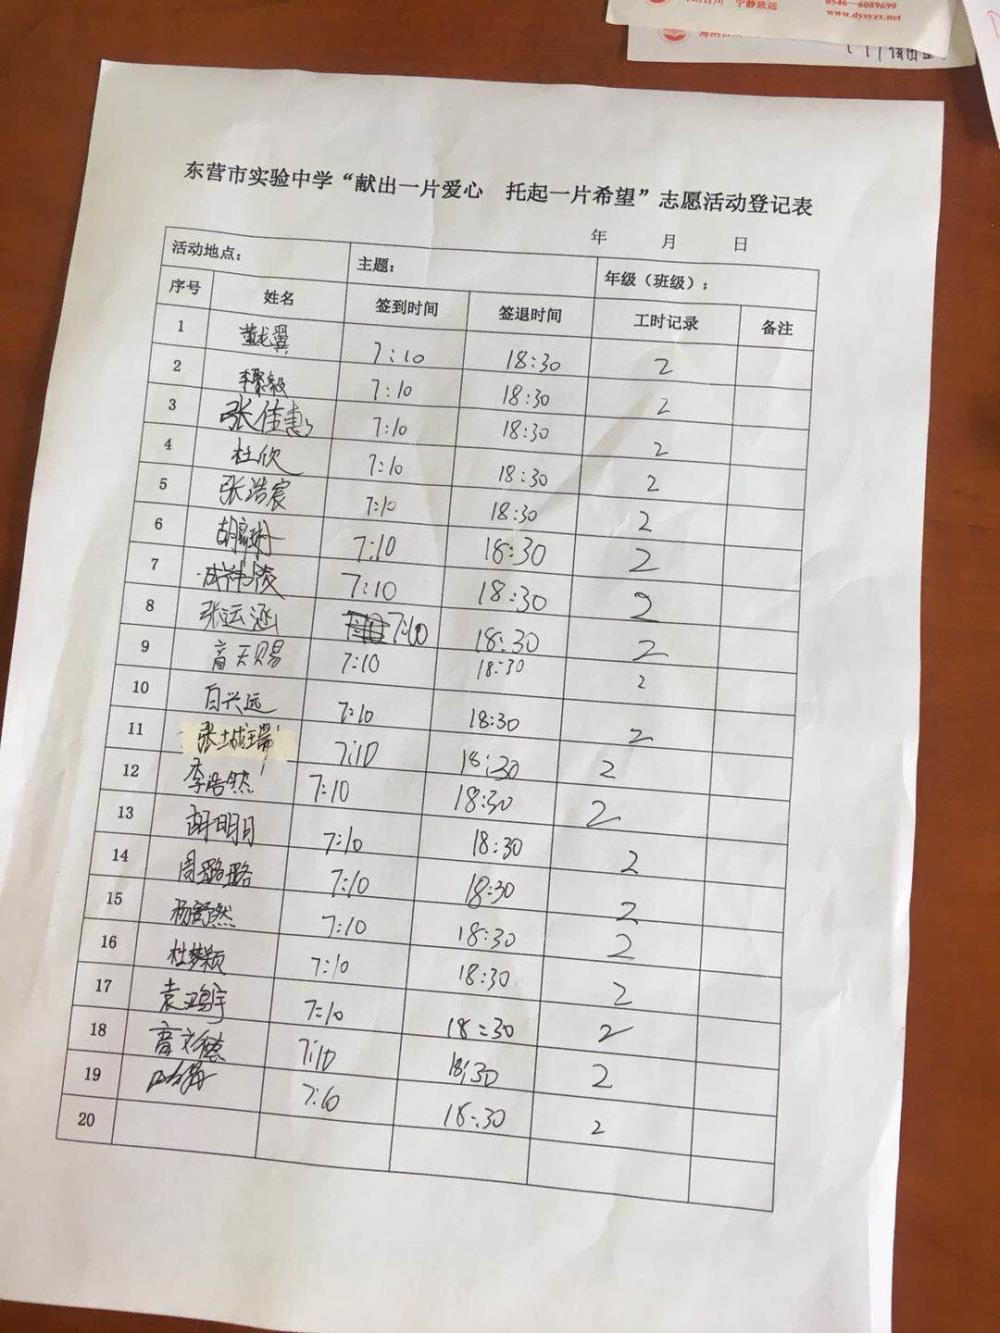 宁静致远
0546—6089699
www.dysyzx.net
东营市实验中学“献出一片爱心 托起一片希望”志愿活动登记表
年 月 日
活动地点： 主题： 年级（班级）：
序号 姓名 签到时间 签退时间 工时记录 备注
1 董龙翼 7:10 18:30 2
2 7:10 18:30 2
3 张佳惠 7:10 18:30 2
4 杜欣 7:10 18:30 2
5 张浩宸 7:10 18:30 2
6 7:10 18:30 2
7 7:10 18:30 2
8 张运涵 7:10 18:30 2
9 天赐 7:10 18:30 2
10 白兴远 7:10 18:30 2
11 张城瑞 7:10 18:30 2
12 李浩然 7:10 18:30 2
13 胡明月 7:10 18:30 2
14 周璐璐 7:10 18:30 2
15 杨舒然 7:10 18:30 2
16 杜梦颖 7:10 18:30 2
17 袁鸿宇 7:10 18:30 2
18 7:10 18:30 2
19 7:10 18:30 2
20